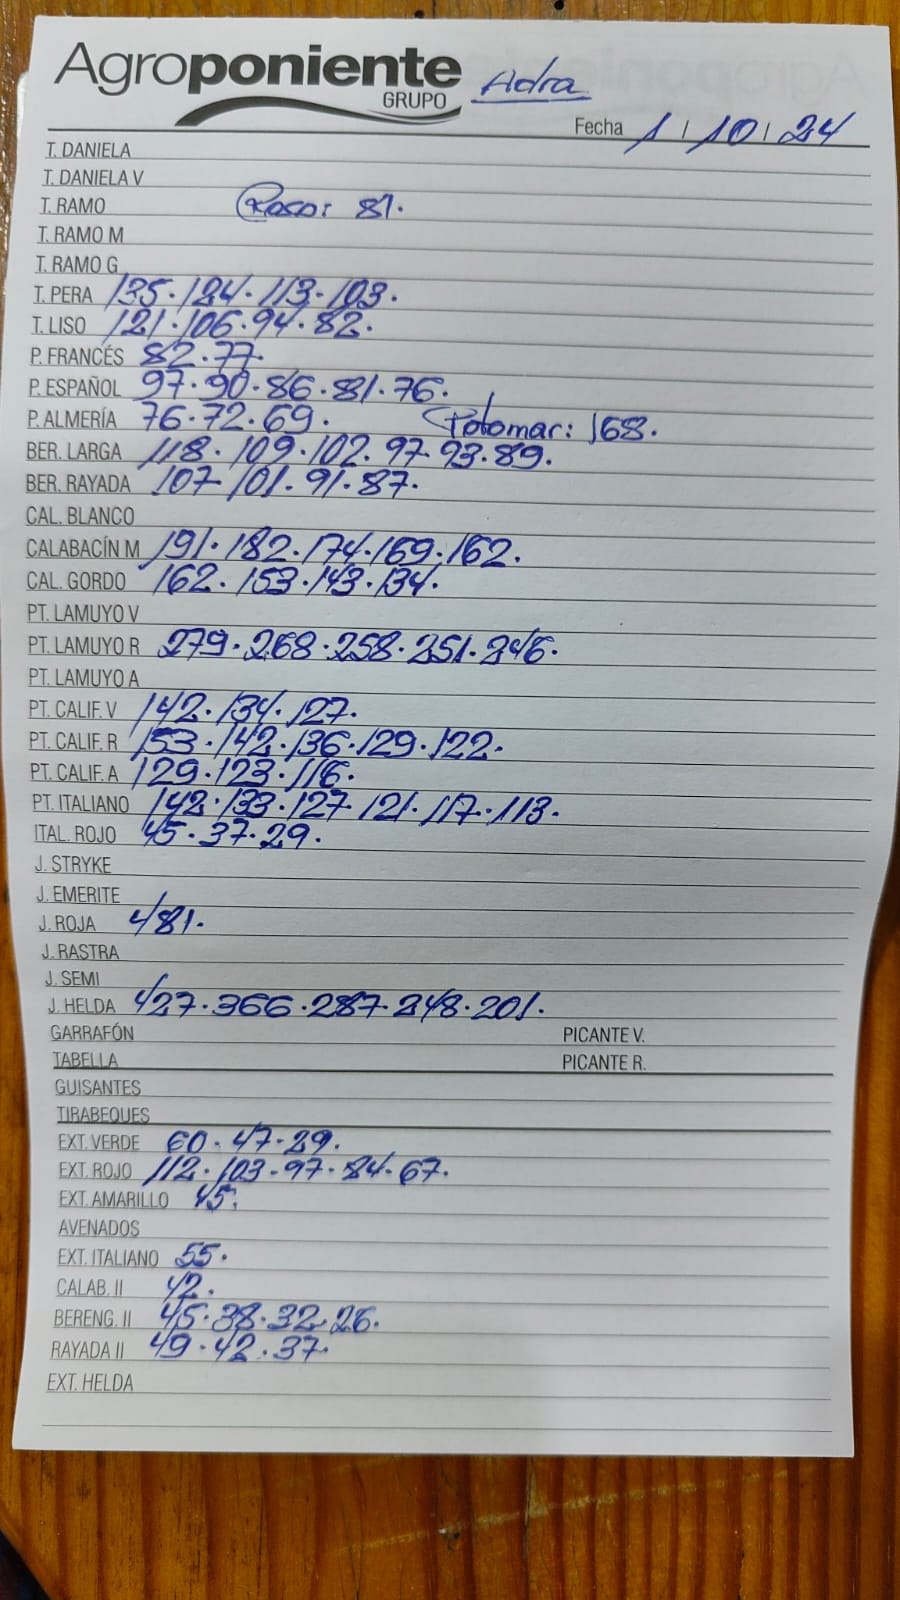 Agroponiente
GRUPO
Adra
Fecha 1 / 10 / 24
T. DANIELA
T. DANIELA V
T. RAMO Rosa: 81.
T. RAMO M
T. RAMO G
T. PERA 135.124.113.103.
T. LISO 121.106.94.82.
P. FRANCÉS 82.77.
P. ESPAÑOL 97.90.86.81.76.
P. ALMERÍA 76.72.69. Polomar: 168.
BER. LARGA 118.109.102.97.93.89.
BER. RAYADA 107.101.91.87.
CAL. BLANCO
CALABACÍN M 191.182.174.169.162.
CAL. GORDO 162.153.143.134.
PT. LAMUYO V
PT. LAMUYO R 279.268.258.251.246.
PT. LAMUYO A
PT. CALIF. V 142.134.127.
PT. CALIF. R 153.142.136.129.122.
PT. CALIF. A 129.123.116.
PT. ITALIANO 142.133.127.121.117.113.
ITAL. ROJO 45.37.29.
J. STRYKE
J. EMERITE
J. ROJA 481.
J. RASTRA
J. SEMI
J. HELDA 427.366.287.248.201.
GARRAFÓN PICANTE V.
TABELLA PICANTE R.
GUISANTES
TIRABEQUES
EXT. VERDE 60.47.29.
EXT. ROJO 112.103.97.84.67.
EXT. AMARILLO 45.
AVENADOS
EXT. ITALIANO 55.
CALAB. II 42.
BERENG. II 45.38.32.26.
RAYADA II 49.42.37.
EXT. HELDA